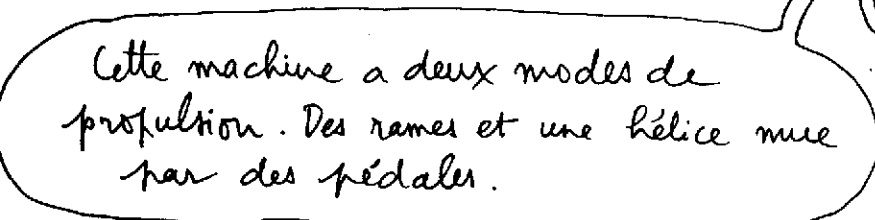 Cette machine a deux modes de
propulsion. Des rames et une hélice mue
par des pédales.